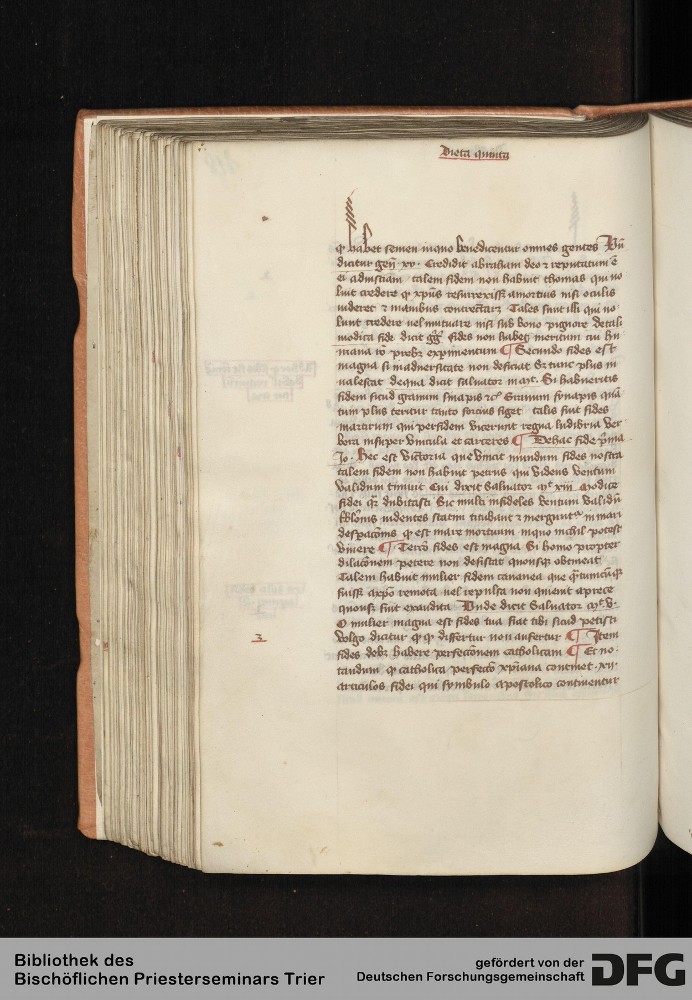 Dieta quinta
qr habet semen in quo benedicentur omnes gentes Vn̄
dicitur gen̄ · xv · Credidit abraham deo ⁊ reputatum ē
ei ad iustiam talem fidem non habuit thomas qui no
luit credere qr xp̄us resurrexiss̄ a mortuis nisi oculis
uideret ⁊ manibus contrectar⁊ Tales sunt illi qui no
lunt credere uel mutuare nisi sub bono pignore De tali
modica fide dicit gg̃ fides non habet meritum cui hu
mana rō prebꝫ experimentum ¶ Secundo fides est
magna si in aduersitate non deficiat Sꝫ tunc plus in
ualescat de qua dicit saluator mat. Si habueritis
fidem sicud granum sinapis ⁊c̄ Granum synapis quā
tum plus teritur tanto forcius figet talis fuit fides
martirum qui per fidem vicerunt regna ludibria ver
bera insuper vincula et carceres ¶ De hac fide p̄ma
Jo · Hec est victoria que vincit mundum fides nostra
talem fidem non habuit petrus qui videns ventum
validum timuit Cui dixit Saluator mt̄ xiiii modice
fidei qr̄ dubitasti Sic multi infideles ventum validū
tribl̄onis uidentes statim titubant ⁊ mergunt᷑ in mari
desperacōnis qr est mare mortuum in quo nichil potest
viuere ¶ Tercō fides est magna Si homo propter
dilacōnem petere non desistat quousqꝫ obtineat
Talem habuit mulier fidem cananea que qn̄tumcūqꝫ
fuiss̄ a xp̄o remota uel repulsa non quieuit a prece
quousqꝫ fuit exaudita Vnde dicit Saluator mt̄ · v ·
O mulier magna est fides tua fiat tibi sicud petisti
Volgo dicitur qr qr differtur non aufertur ¶ Item
3
fides debꝫ habere perfecconem catholicam ¶ Et no-
tandum qr catholica perfeccō xp̄iana continet · xii ·
articulos fidei qui symbulo apostolico continentur
Bibliothek des
Bischöflichen Priesterseminars Trier
gefördert von der
Deutschen Forschungsgemeinschaft
DFG